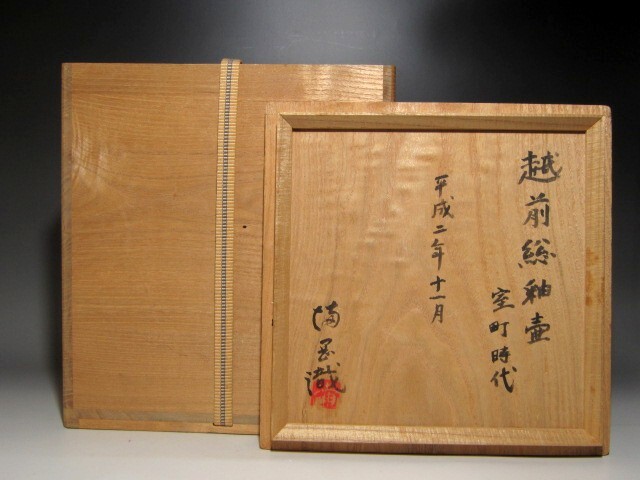 越前総釉壷
室町時代
平成二年十一月
満岡識